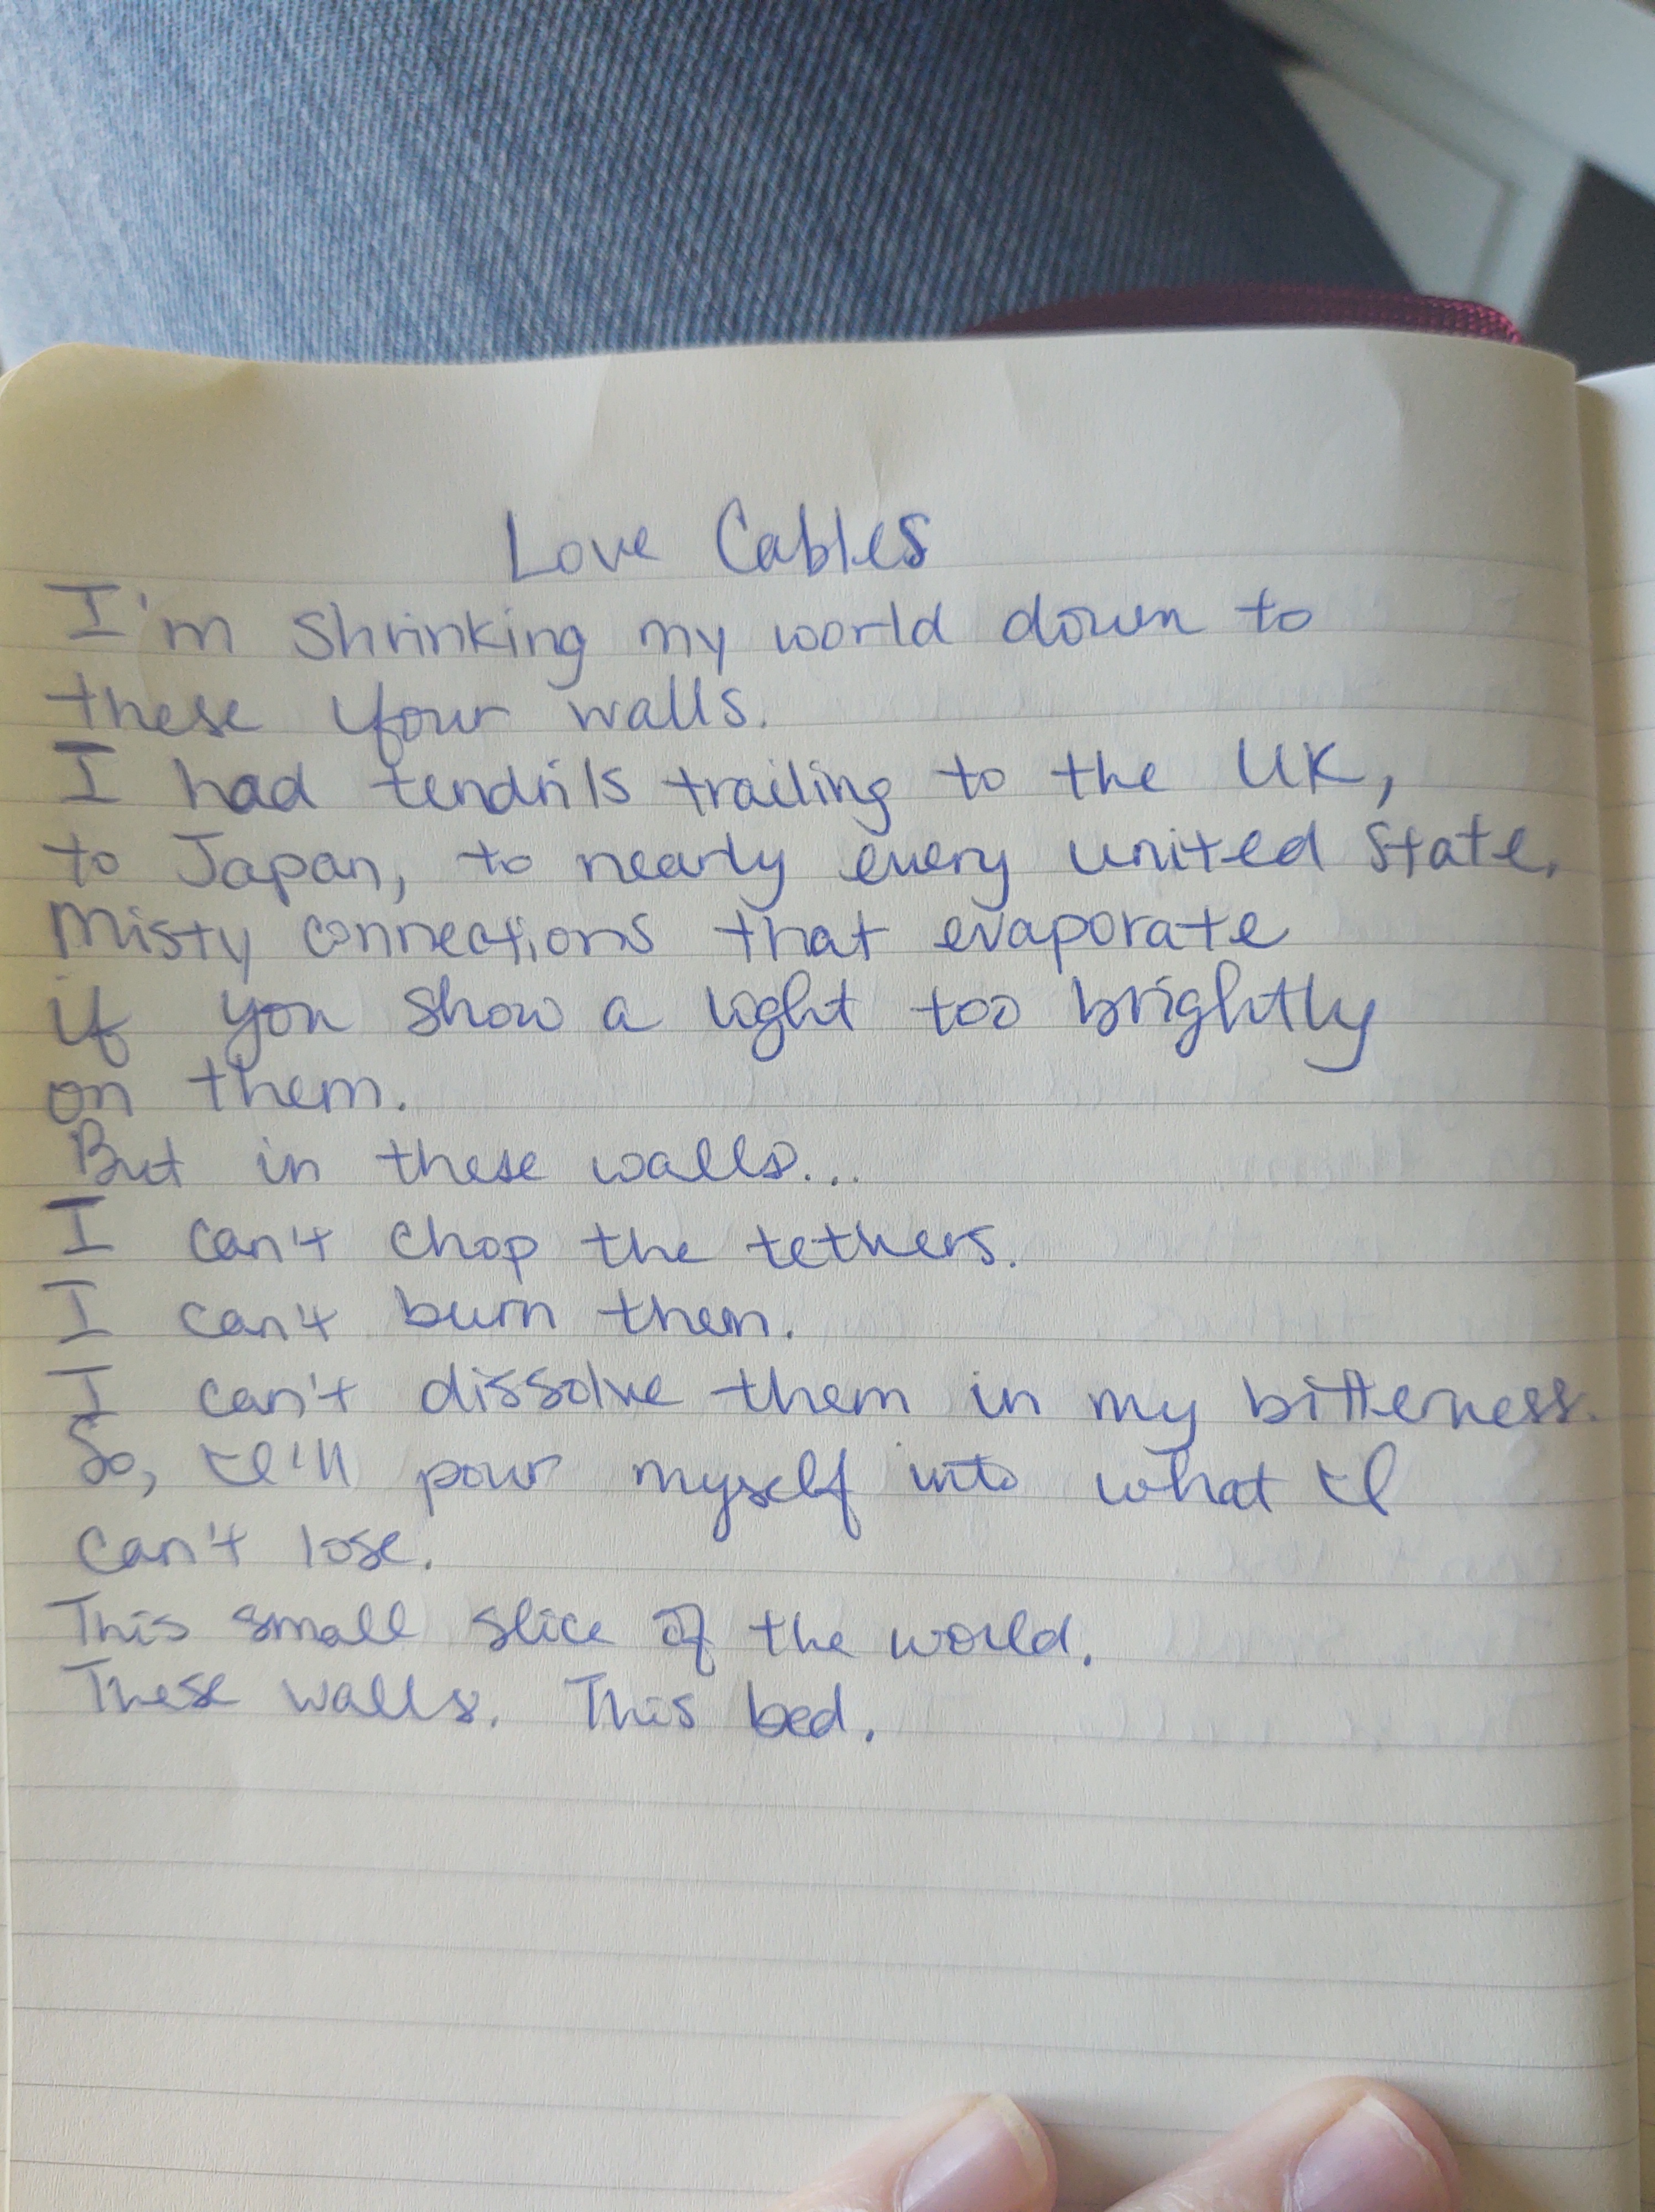 Love Cables
I'm shrinking my world down to
these four walls.
I had tendrils trailing to the UK,
to Japan, to nearly every united state.
Misty connections that evaporate
if you show a light too brightly
on them.
But in these walls...
I can't chop the tethers.
I can't burn them.
I can't dissolve them in my bitterness.
So, I'll pour myself into what I
can't lose.
This small slice of the world.
These walls. This bed.